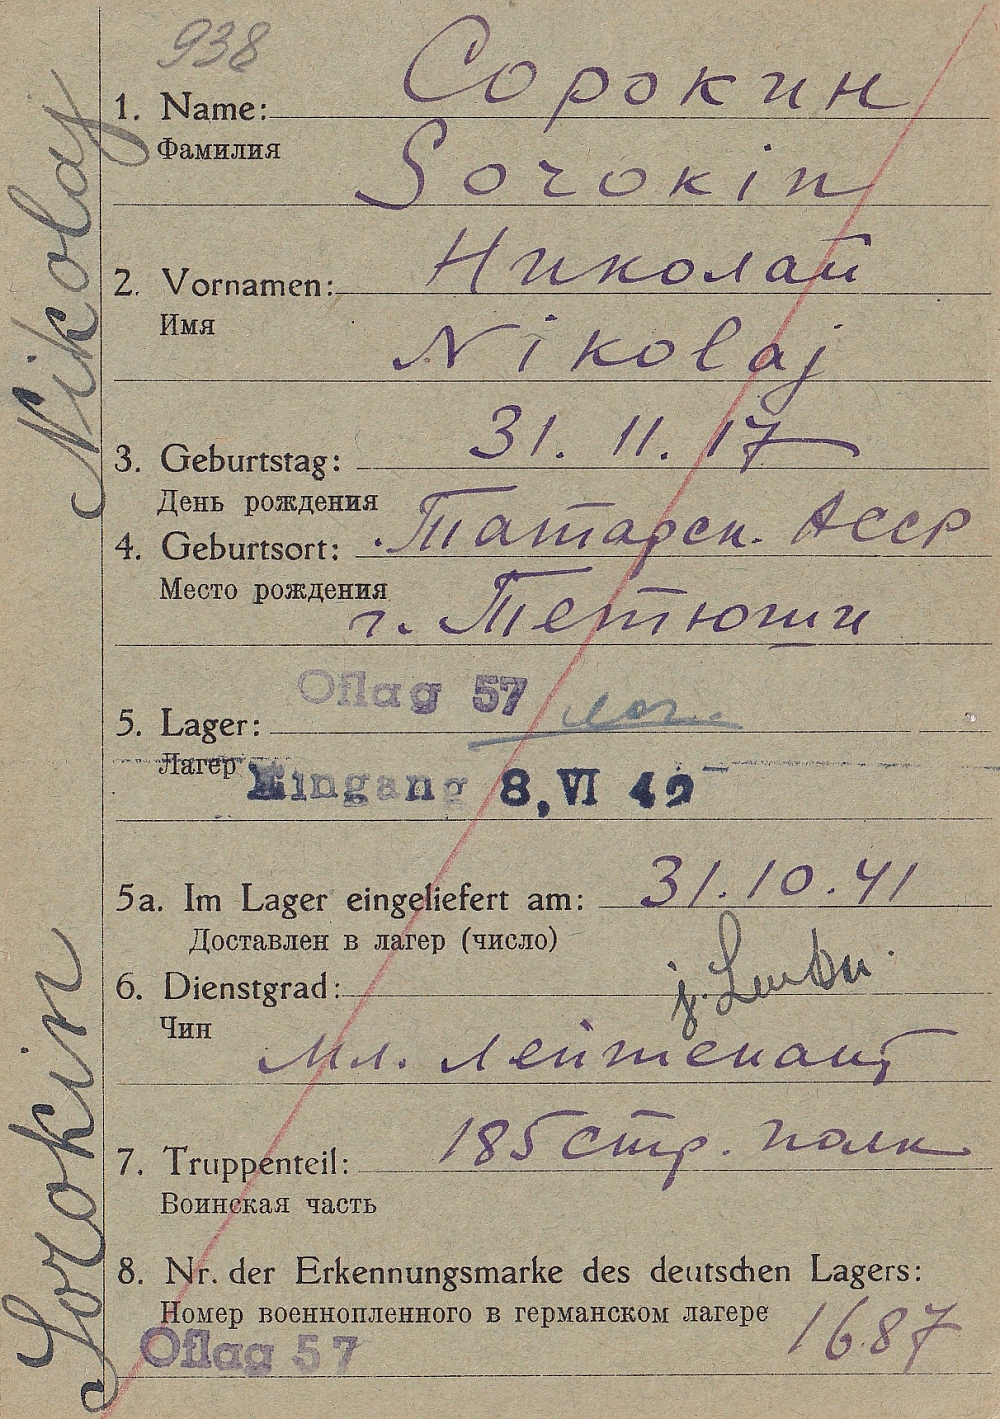 938
1. Name: Сорокин
Фамилия
Sorokin
2. Vornamen: Николай
Имя
Nikolaj
3. Geburtstag: 31. 11. 17
День рождения
4. Geburtsort: Татарск. АССР
Место рождения
г. Тетюши
Oflag 57
5. Lager:
Лагер
Eingang 8, VI 42
5a. Im Lager eingeliefert am: 31.10.41
Доставлен в лагер (число)
6. Dienstgrad:
Чин
Мл. лейтенант
7. Truppenteil: 185 стр. полк
Воинская часть
8. Nr. der Erkennungsmarke des deutschen Lagers:
Номер военнопленного в германском лагере 1687
Oflag 57
Sorokin Nikolaj